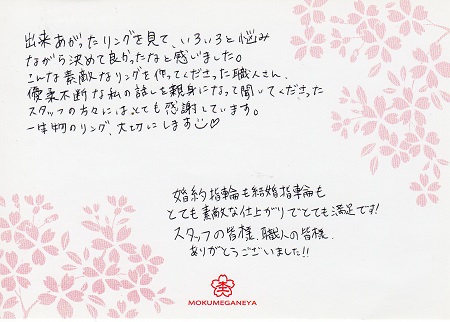 出来あがったリングを見て、いろいろと悩み
ながら決めて良かったなと感じました。
こんな素敵なリングを作ってくださった職人さん、
優柔不断な私の話しを親身になって聞いてくださった
スタッフの方々にはとても感謝しています。
一生物のリング、大切にします♡
婚約指輪も結婚指輪も
とても素敵な仕上がりでとても満足です!
スタッフの皆様、職人の皆様、
ありがとうございました!!
MOKUMEGANEYA